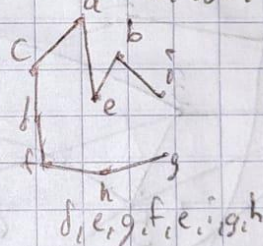 a
b
c
i
e
f
g
h
e, g, f, e, i, g, h